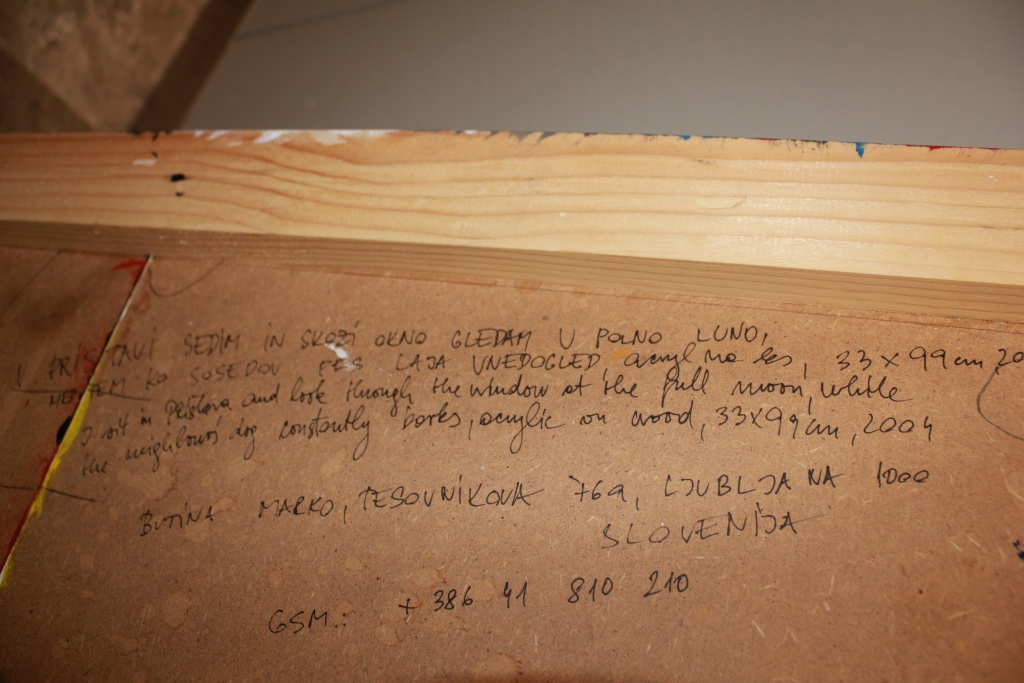 SEDIM IN SKOZI OKNO GLEDAM V POLNO LUNO,
KO SOSEDOV PES LAJA VNEDOGLED acryl na les, 33 x 99 cm, 20
I sit in and look through the window at the full moon, while
the neighbours dog constantly barks, acrylic on wood, 33x99cm, 2004
BUTINA MARKO, TESOVNIKOVA 76a, LJUBLJANA 1000
SLOVENIJA
GSM.: + 386 41 810 210